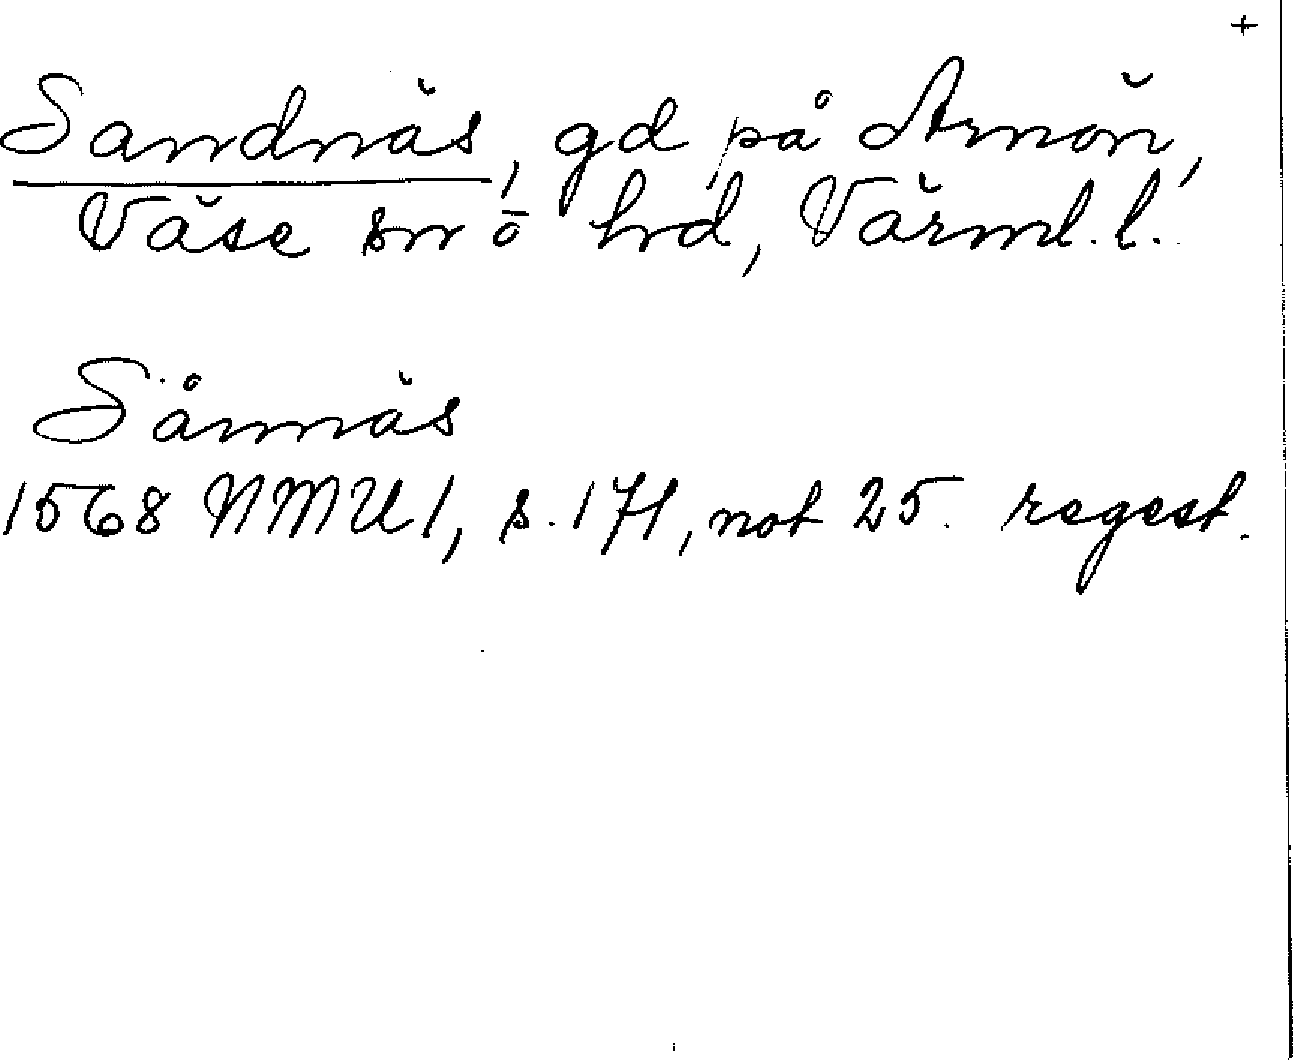 +
Sandnäs, gd på Arnön,
Väse sn o hd, Värml. l.
Sånnäs
1568 NMU 1, s. 171, not 25. regest.